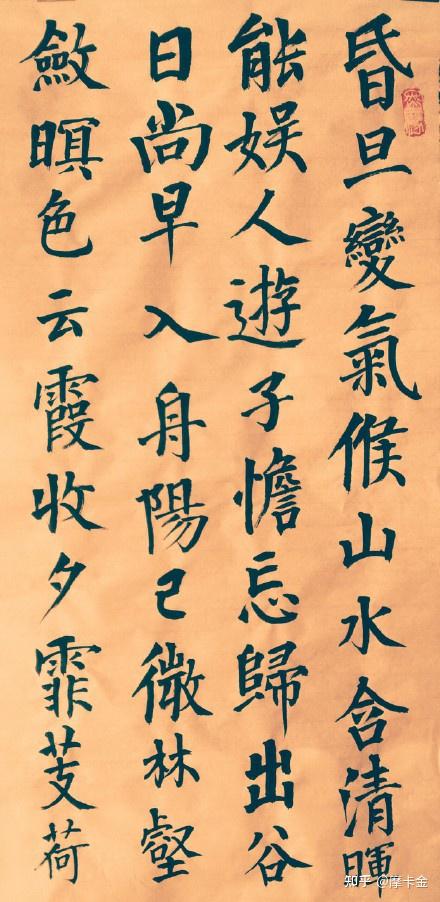 昏旦變氣候山水含清暉
能娱人遊子憺忘歸出谷
日尚早入舟陽已微林壑
斂暝色云霞收夕霏芰荷
知乎 @摩卡金